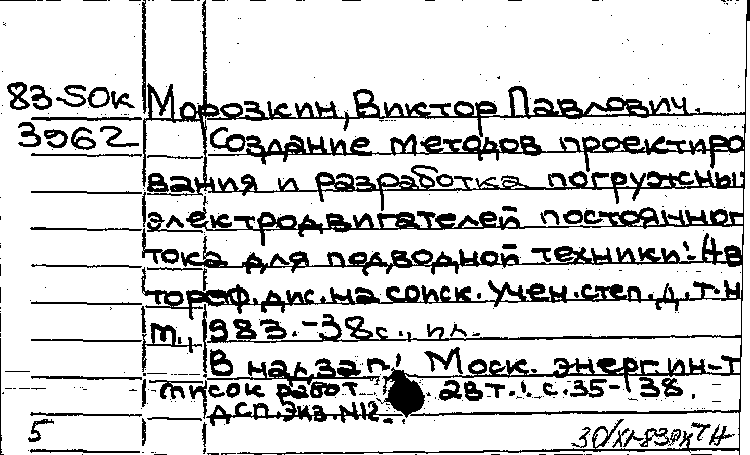 83-5ОК Морозкин, Виктор Павлович.
3962 Создание методов проектиро
вания и разработка погружны
электродвигателей постоянног
тока для подводной техники: Ав
тореф. дис. на соиск. учен. степ. д.т.н
М., 1983.-38с., ил.
В надзаг.: Моск. энерг. ин-т
писок работ 28т.: с.35-38.
ДСП. Экз. N12.
5